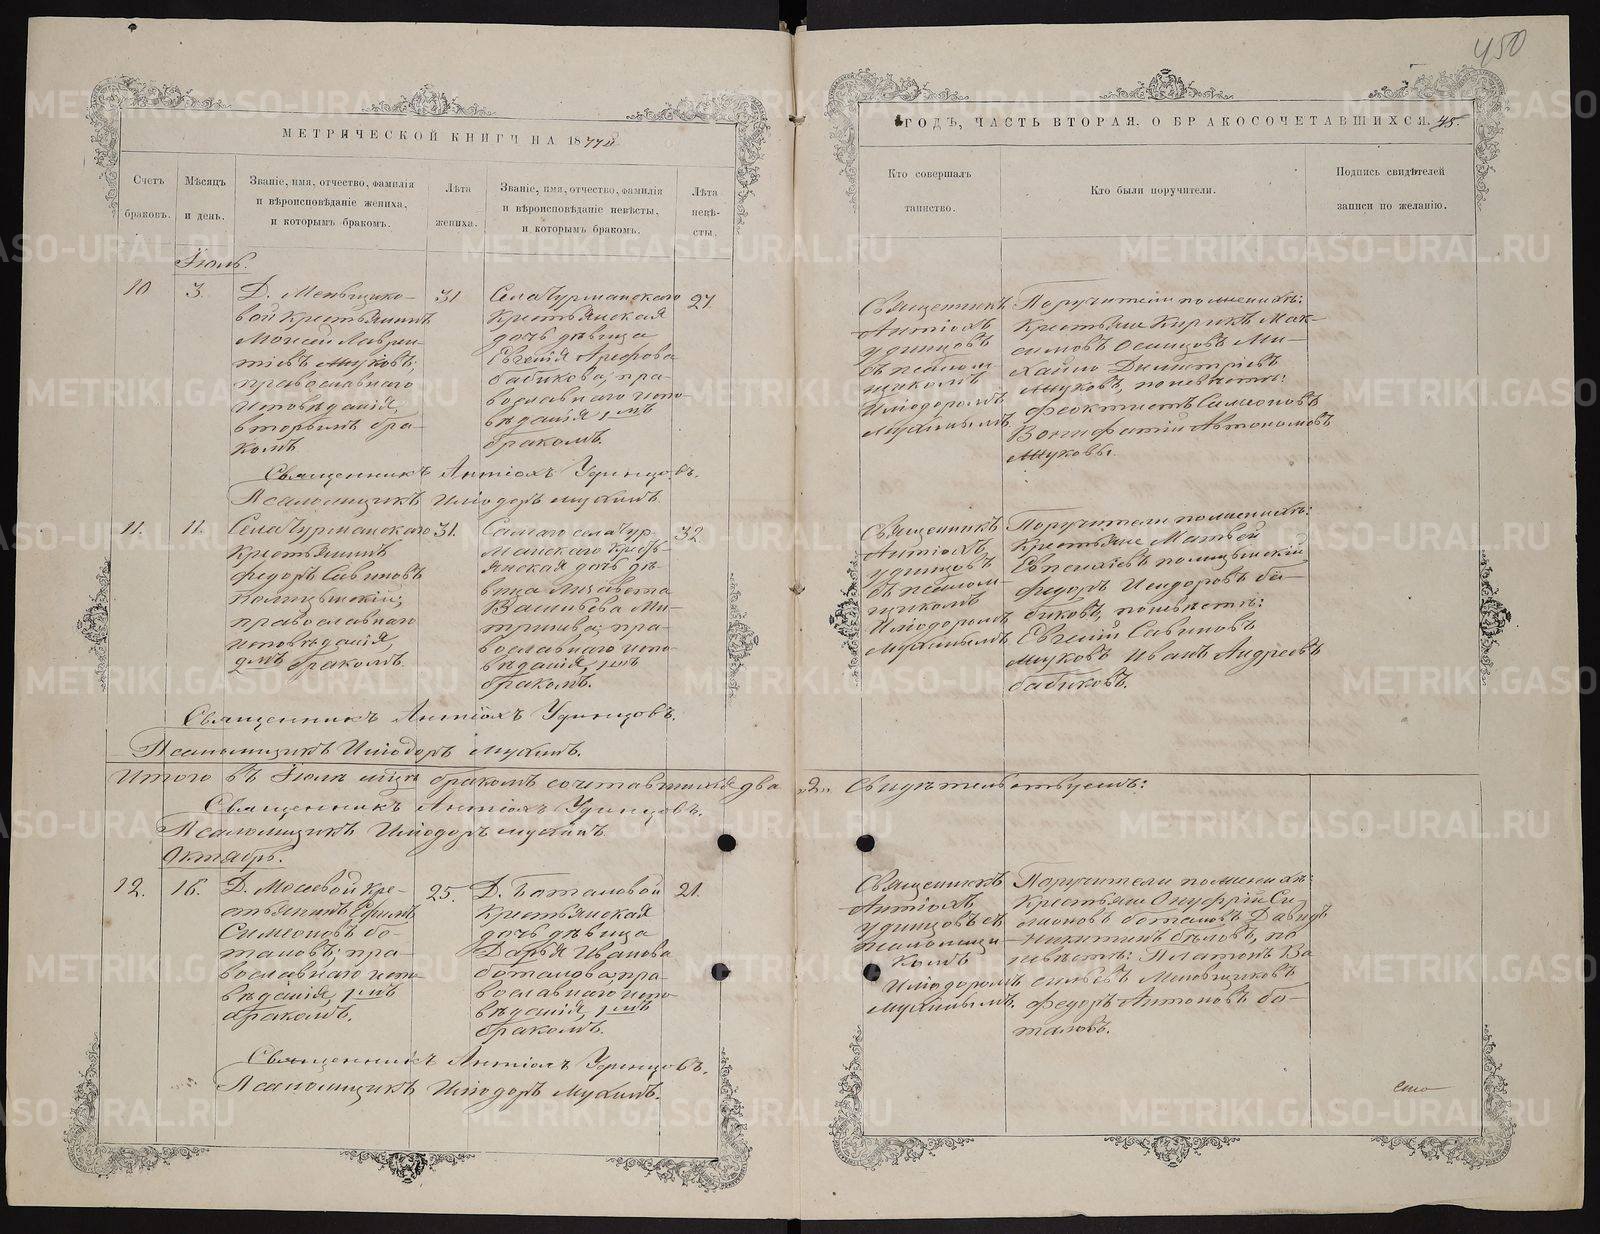 450
МЕТРИЧЕСКОЙ КНИГЧ НА 1877й
ГОДЪ, ЧАСТЬ ВТОРАЯ, О БРАКОСОЧЕТАВШИХСЯ. 45.
Счетъ браковъ.
Мѣсяцъ и день.
Званіе, имя, отчество, фамилія
и вѣроисповѣданіе жениха,
и которымъ бракомъ.
Лѣта жениха.
Званіе, имя, отчество, фамилія
и вѣроисповѣданіе невѣсты,
и которымъ бракомъ.
Лѣта невѣ-
сты.
Кто совершалъ
таинство.
Кто были поручители.
Подпись свидѣтелей
записи по желанію.
Іюль.
10
3.
Д. Меньщико-
вой крестьянинъ
Моисей Лаврен-
тіевъ Жуковъ;
православнаго
исповѣданія,
вторымъ бра-
комъ
31
Села Чурманскаго
крестьянская
дочь дѣвица
Евгенія Арефова
Бабикова; пра-
вославнаго испо-
вѣданія, 1мъ
бракомъ.
27.
Священникъ
Антіохъ
Удинцовъ
съ псалом-
щикомъ
Иліодоромъ
Мухинымъ.
Поручители по женихѣ:
Крестьяне Кирикъ Мак-
симовъ Осинцовъ Ми-
хаилъ Димитріевъ
Жуковъ, по невѣстѣ:
Феоктистъ Симеоновъ
Вонифатій Автономовъ
Жуковы.
Священникъ Антіохъ Удинцовъ.
Псаломщикъ Иліодоръ Мухинъ.
11.
11.
Села Чурманскаго
крестьянинъ
Федоръ Савиновъ
православнаго
исповѣданія,
2мъ бракомъ
31.
Самаго села Чур-
манскаго кресть-
янская дочь дѣ-
вица Лизавета
Васильева Ми-
пра-
вославнаго испо-
вѣданія, 1мъ
бракомъ.
32
Священникъ
Антіохъ
Удинцовъ
съ псалом-
щикомъ
Иліодоромъ
Мухинымъ
Поручители по женихѣ:
Крестьяне Матвей
Федоръ Исидоровъ Ба-
биковъ, по невѣстѣ:
Евгеній Савиновъ
Жуковъ Иванъ Андреевъ
Бабиковъ.
Священникъ Антіохъ Удинцовъ.
Псаломщикъ Иліодоръ Мухинъ.
Итого въ Іюлѣ мцѣ бракомъ сочетавшихся два „2„ Свидѣтельствуемъ:
Священникъ Антіохъ Удинцовъ.
Псаломщикъ Иліодоръ Мухинъ
Октябрь.
12.
16.
Д. Мосевой кре-
стьянинъ Ефимъ
Симеоновъ Бо-
таловъ; пра-
вославнаго испо-
вѣданія, 1мъ
бракомъ.
25.
Д. Боталовой
крестьянская
дочь дѣвица
Дарья Иванова
Боталова; пра-
вославнаго испо-
вѣданія, 1мъ
бракомъ.
21.
Священникъ
Антіохъ
Удинцовъ съ
псаломщи-
комъ
Иліодоромъ
Мухинымъ.
Поручители по женихѣ:
Крестьяне Онуфрій Си-
меоновъ Боталовъ Давидъ
Никитинъ Бѣловъ, по
невѣстѣ: Платонъ Ва-
сильевъ Меньщиковъ
Федоръ Антоновъ Бо-
таловъ.
Священникъ Антіохъ Удинцовъ.
Псаломщикъ Иліодоръ Мухинъ.
METRIKI.GASO-URAL.RU